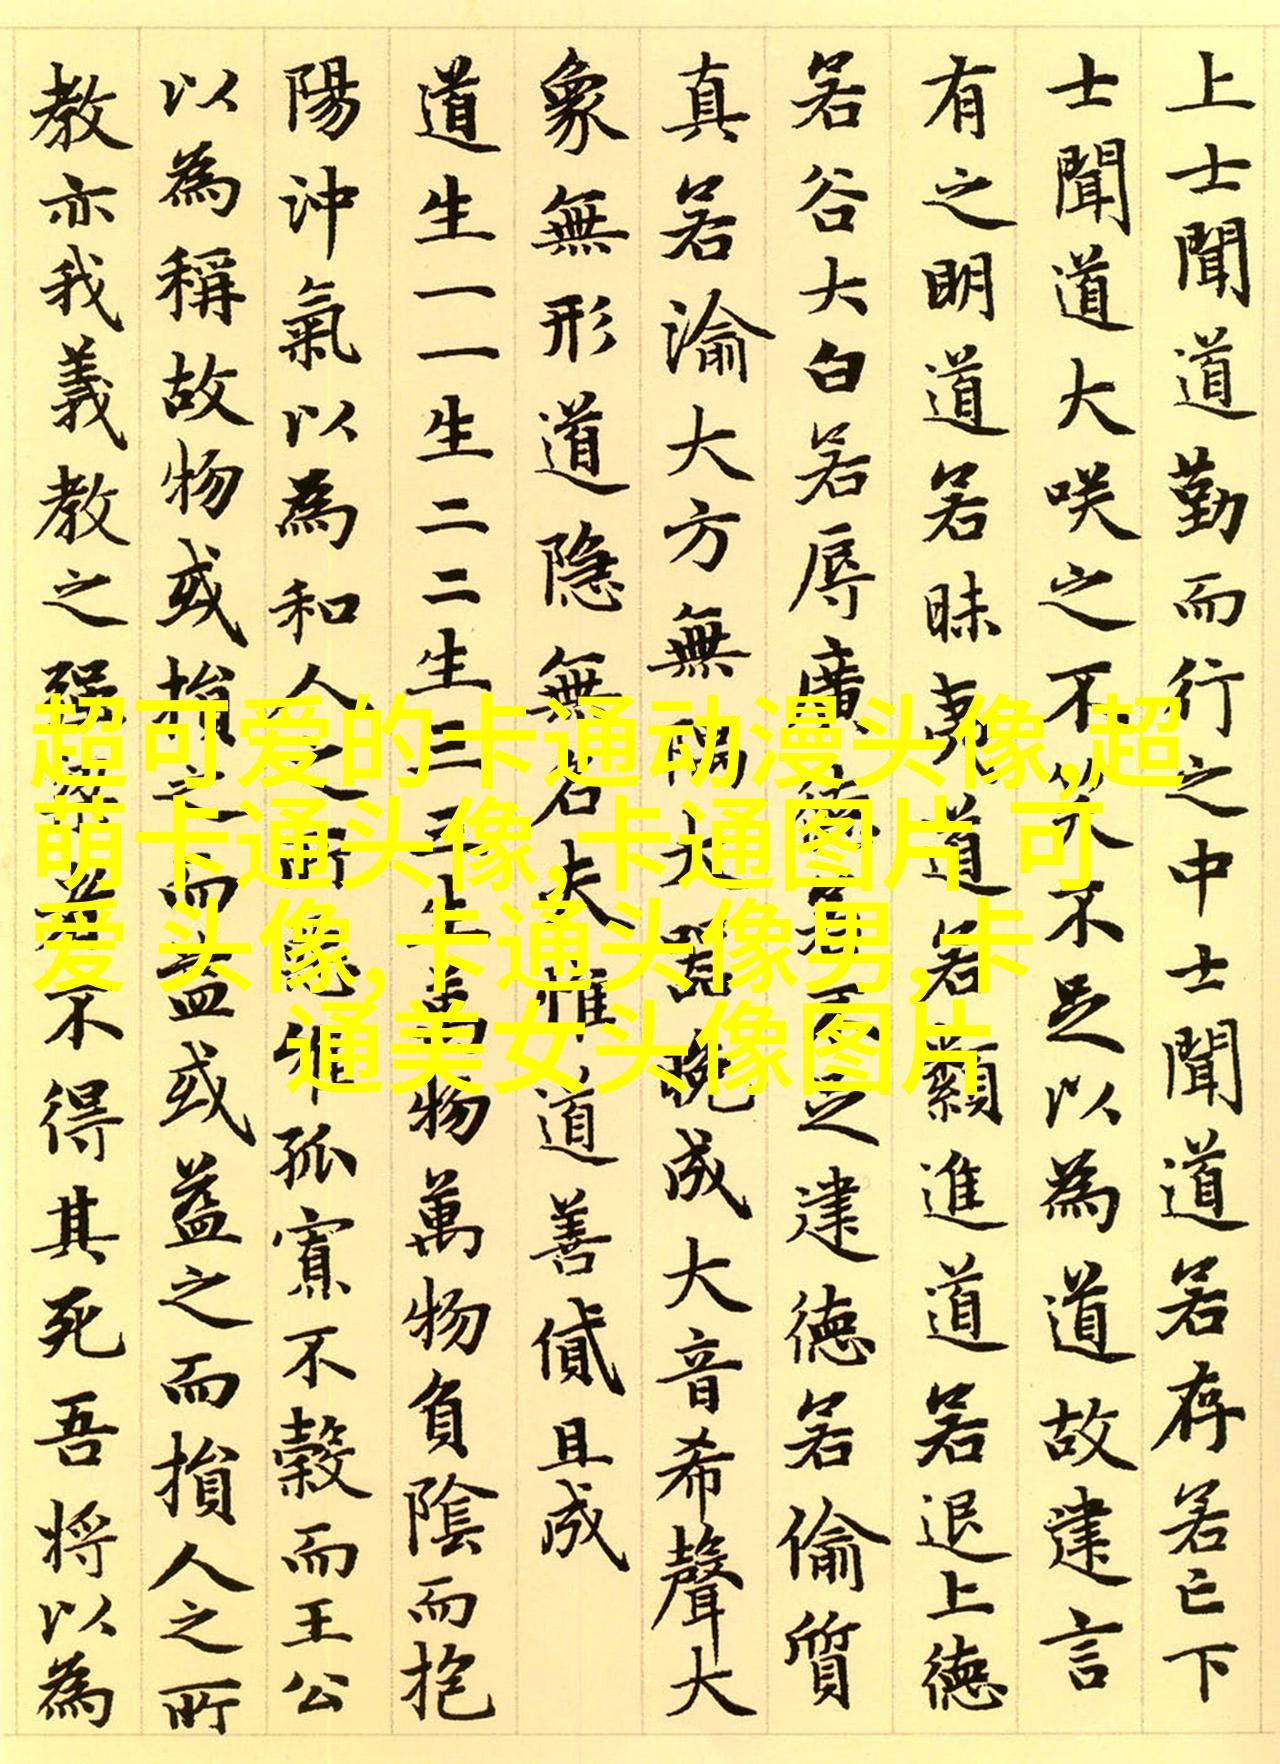 上士聞道勤而行之中士聞道若存若亡下
士聞道大咲之不笑不足以為道故建言
有之明道若昧夷道若纇進道若退上德
若谷大白若辱廣德若不足建德若偷質
真若渝大方無隅大器晚成大音希聲大
象無形道隐無名夫惟道善貸且成
道生一一生二二生三三生萬物萬物負陰而抱
陽沖氣以為和人之所惡惟孤寡不穀而王公
以為稱故物或損之而益或益之而損人之所
教亦我義教之強梁者不得其死吾将以為
超可爱的卡通动漫头像,超
萌卡通头像,卡通图片 可
爱 头像,卡通头像男,卡
通美女头像图片